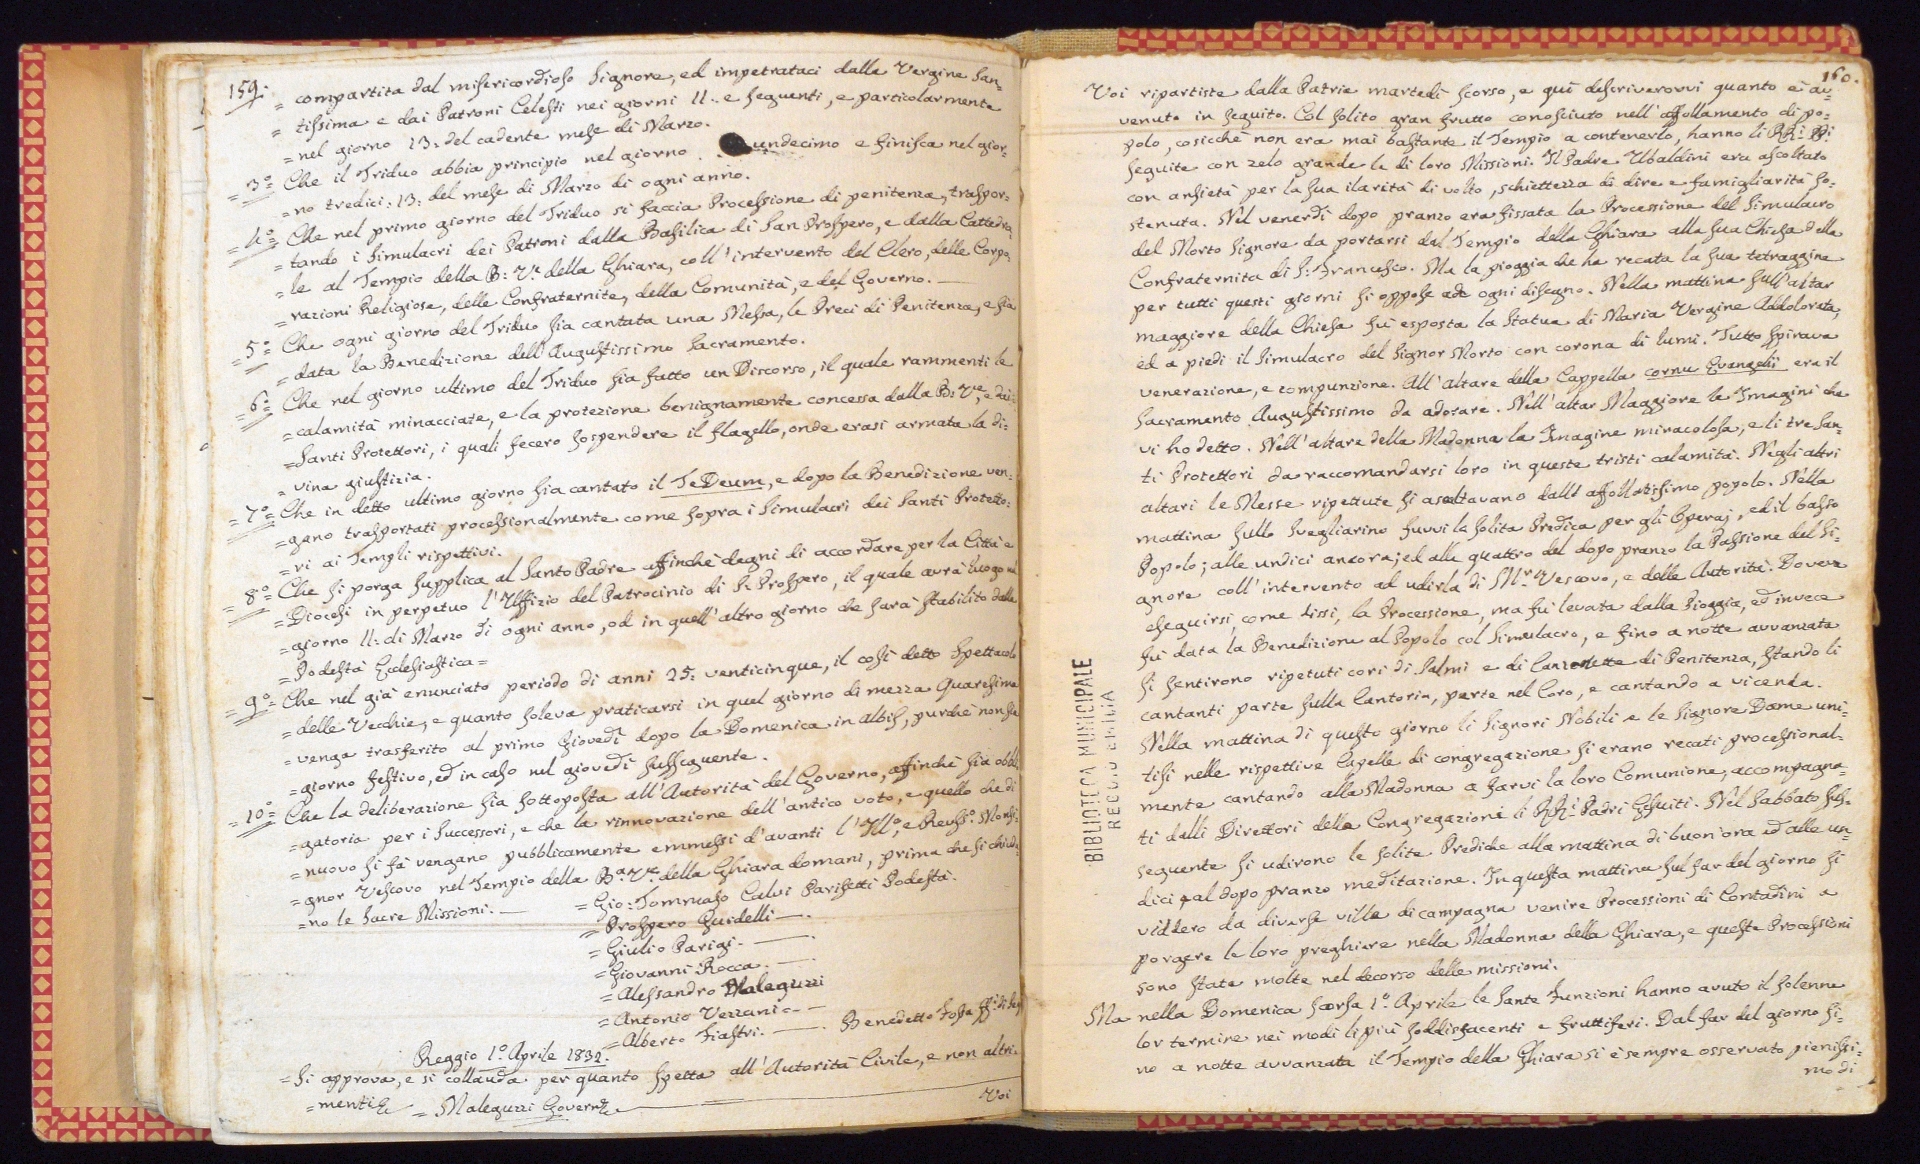 159.
= compartita dal misericordioso Signore, ed impetrataci dalla Vergine San-
= tissima e dai Patroni Celesti nei giorni 11: e seguenti, e particolarmente
= nel giorno 13: del cadente mese di Marzo.
= 3.° = Che il Triduo abbia principio nel giorno undecimo e finisca nel gior-
= no tredici: 13: del mese di Marzo di ogni anno.
= 4.° = Che nel primo giorno del Triduo si faccia Processione di penitenza, traspor-
= tando i Simulacri dei Patroni dalla Basilica di San Prospero, e dalla Cattedra-
= le al Tempio della B: V.e della Ghiara, coll'intervento del Clero, delle Corpo-
= razioni Religiose, delle Confraternite, della Comunità, e del Governo. —
= 5.° = Che ogni giorno del Triduo sia cantata una Messa, le Preci di Penitenza, e sia
= data la Benedizione dell'Augustissimo Sacramento.
= 6.° = Che nel giorno ultimo del Triduo sia fatto un Discorso, il quale rammenti le
= calamità minacciate, e la protezione benignamente concessa dalla B: V.e, e dai
= Santi Protettori, i quali fecero sospendere il flagello, onde erasi armata la di-
= vina giustizia.
= 7.° = Che in detto ultimo giorno sia cantato il TeDeum, e dopo la Benedizione ven-
= gano trasportati processionalmente come sopra i Simulacri dei Santi Protetto-
= ri ai Templi rispettivi.
= 8.° = Che si porga supplica al Santo Padre affinchè degni di accordare per la Città e
= Diocesi in perpetuo l'Uffizio del Patrocinio di S: Prospero, il quale avrà luogo nel
= giorno 11: di Marzo di ogni anno, od in quell'altro giorno che sarà stabilito dalla
= Podestà Ecclesiastica =
= 9.° = Che nel già enunciato periodo di anni 25: venticinque, il così detto Spettacolo
= delle Vecchie, e quanto soleva praticarsi in quel giorno di mezza Quaresima
= venga trasferito al primo Giovedì dopo la Domenica in Albis, purchè non sia
= giorno festivo, ed in caso nel giovedì susseguente.
= 10.° = Che la deliberazione sia sottoposta all'Autorità del Governo, affinchè sia obbli-
= gatoria per i Successori, e che la rinnovazione dell'antico voto, e quello che di
= nuovo si fà vengano pubblicamente emmessi d'avanti l'Ill.o, e Reviss.o Monsi-
= gnor Vescovo nel Tempio della B.a V.e della Ghiara domani, prima che si chiuda-
= no le Sacre Missioni. —
= Gio: Tommaso Calvi Parisetti Podestà.
= Prospero Guidelli —.
= Giulio Parigi. —.
= Giovanni Rocca. —.
= Alessandro Maleguzzi
= Antonio Vezzani. —
= Alberto Fiastri. —. Benedetto Fossa
Reggio 1.° Aprile 1832.
= Si approva, e si collauda per quanto spetta all'Autorità Civile, e non altri-
= menti = Maleguzzi Govern.e
Voi
160.
Voi ripartiste dalla Patria martedì scorso, e quì descriverovvi quanto è av-
venuto in seguito. Col solito gran frutto conosciuto nell'affollamento di po-
polo, cosicchè non era mai bastante il Tempio a contenerlo, hanno li RR.i P.i
seguite con zelo grande le di loro Missioni. Il Padre Ubaldini era ascoltato
con ansietà per la sua ilarità di volto, schiettezza di dire e famigliarità so-
stenuta. Nel venerdì dopo pranzo era fissata la Processione del Simulacro
del Morto Signore da portarsi dal Tempio della Ghiara alla sua Chiesa della
Confraternita di S: Francesco. Ma la pioggia che ha recata la sua tetraggine
per tutti questi giorni si oppose ad ogni disegno. Nella mattina sull'altar
maggiore della Chiesa fu esposta la Statua di Maria Vergine Addolorata,
ed a piedi il Simulacro del Signor Morto con corona di lumi. Tutto spirava
venerazione, e compunzione. All'altare della Cappella cornu Evangelii era il
Sacramento Augustissimo da adorare. Nell'altar Maggiore le Imagini che
vi ho detto. Nell'altare della Madonna la Imagine miracolosa, e li tre San-
ti Protettori da raccomandarsi loro in queste tristi calamità. Negli altri
altari le Messe ripettute si ascoltavano dall'affollatissimo popolo. Nella
mattina sullo svegliarino fuvvi la solita Predica per gli Operaj, ed il basso
Popolo; alle undici ancora; ed alle quattro del dopo pranzo la Passione del Si-
gnore coll'intervento ad udirla di M.r Vescovo, e delle Autorità. Doveva
eseguirsi, come dissi, la Processione, ma fu levata dalla Pioggia, ed invece
fu data la Benedizione al Popolo col Simulacro, e fino a notte avvanzata
si sentirono ripetuti cori di Salmi e di Canzonette di Penitenza, stando li
cantanti parte sulla Cantoria, parte nel Coro, e cantando a vicenda.
Nella mattina di questo giorno li Signori Nobili e le Signore Dame uni-
tisi nelle rispettive Capelle di congregazione si erano recati procession­al-
mente cantando alla Madonna a farvi la loro Comunione, accompagna-
ti dalli Direttori della Congregazioni li RR.i Padri Gesuiti. Nel Sabbato sus-
seguente si udirono le solite Prediche alla mattina di buon'ora ed alle un-
dici e al dopo pranzo meditazione. In questa mattina sul far del giorno si
viddero da diverse ville di campagna venire Processioni di Contadini a
porgere le loro preghiere nella Madonna della Ghiara, e queste Processioni
sono state molte nel decorso delle missioni.
Ma nella Domenica scorsa 1.° Aprile le Sante Funzioni hanno avuto il solenne
lor termine nei modi li più soddisfacenti e fruttiferi. Dal far del giorno fi-
no a notte avvanzata il Tempio della Ghiara si è sempre osservato pienissi-
mo di
BIBLIOTECA MUNICIPALE
REGGIO EMILIA